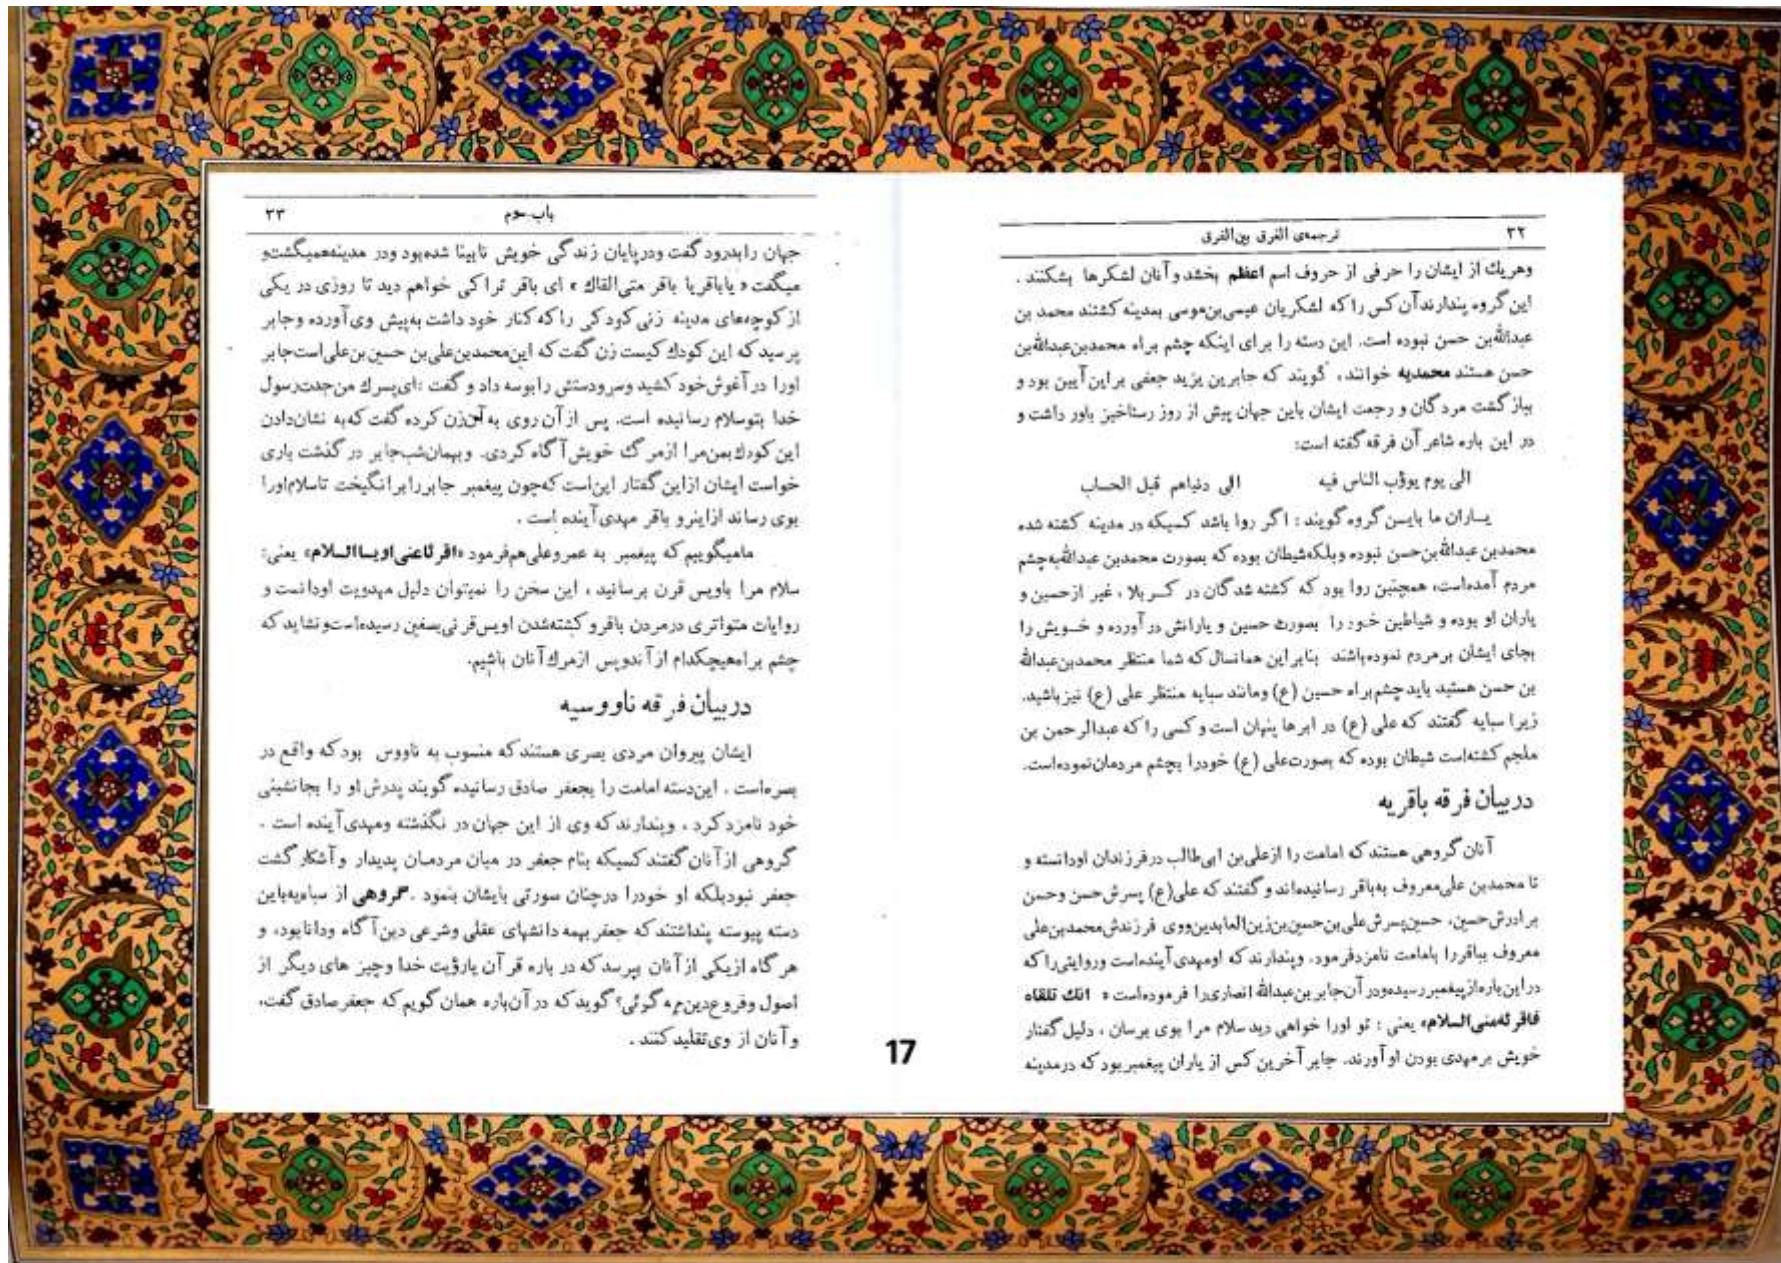 ۳۲
ترجمه‌ی الفرق بین‌الفرق
وهریك از ایشان را حرفی از حروف اسم اعظم بخشد و آنان لشكرها بشكنند .
این گروه پندارند آن كس را كه لشكریان عیسی‌بن‌موسی بمدینه كشتند محمد بن
عبدالله‌بن حسن نبوده است. این دسته را برای اینكه چشم براه محمدبن‌عبدالله‌بن
حسن هستند محمدیه خوانند. گویند كه جابربن یزید جعفی براین آیین بود و
بباز گشت مردگان و رجعت ایشان باین جهان پیش از روز رستاخیز باور داشت و
در این باره شاعر آن فرقه گفته است:
الی یوم یوؤب الناس فیه الی دنیاهم قبل الحساب
یــاران ما بایـن گروه گویند : اگر روا باشد كسیكه در مدینه كشته شده
محمدبن عبدالله‌بن‌حسن نبوده وبلكه‌شیطان بوده كه بصورت محمدبن عبدالله‌به‌چشم
مردم آمده‌است، همچنین روا بود كه كشته شدگان در كـربلا ، غیر ازحسین و
یاران او بوده و شیاطین خـود را بصورت حسین و یارانش در آورده و خـویش را
بجای ایشان برمردم نموده‌باشند بنابراین همانسال كه شما منتظر محمدبن‌عبدالله
بن حسن هستید باید چشم‌براه حسین (ع) ومانند سبایه منتظر علی (ع) نیز باشید.
زیرا سبایه گفتند كه علی (ع) در ابرها پنهان است و كسی را كه عبدالرحمن بن
ملجم كشته‌است شیطان بوده كه بصورت‌علی (ع) خودرا بچشم مردمان‌نموده‌است.
در بیان فرقه باقریه
آنان گروهی هستند كه امامت را ازعلی‌بن ابی‌طالب درفرزندان اودانسته و
تا محمدبن علی‌معروف به‌باقر رسانیده‌اند و گفتند كه علی(ع) پسرش‌حسن وحسن
برادرش‌حسین، حسین‌پسرش‌علی‌بن‌حسین‌بن‌زین‌العابدین‌ووی فرزندش‌محمدبن‌علی
معروف بباقررا بامامت نامزدفرمود. وپندارند كه اومهدی آینده‌است وروایتی‌را كه
در این‌باره‌ازپیغمبر‌رسیده‌ودر آن‌جابر‌بن‌عبدالله انصاری‌را فرموده‌است « انك تلقاه
فاقرئه‌منی‌السلام» یعنی : تو اورا خواهی دید سلام مرا بوی برسان ، دلیل گفتار
خویش برمهدی بودن او آورند. جابر آخرین كس از یاران پیغمبر بود كه درمدینه
باب سوم
۳۳
جهان رابدرود گفت ودرپایان زندگی خویش نابینا شده‌بود ودر مدینه‌همیگشت‌و
میگفت « یاباقریا باقر متی‌القاك » ای باقر ترا كی خواهم دید تا روزی در یكی
از كوچه‌های مدینه زنی كودكی را كه كنار خود داشت به‌پیش وی آورده وجابر
پرسید كه این كودك كیست زن گفت كه این‌محمدبن‌علی‌بن حسین‌بن‌علی‌است‌جابر
اورا در آغوش‌خود كشید وسرودستش رابوسه داد و گفت : ای‌پسرك من‌جدت‌رسول
خدا بتوسلام رسانیده است. پس از آن روی به آن‌زن كرده گفت كه‌به نشان‌دادن
این كودك‌بمن‌مرا ازمرگ خویش آگاه كردی. وبهمان‌شب‌جابر در گذشت باری
خواست ایشان ازاین گفتار این‌است كه‌چون پیغمبر جابررابر انگیخت تاسلام‌اورا
بوی رساند ازاینرو باقر مهدی آینده است .
مامیگوییم كه پیغمبر به عمروعلی‌هم‌فرمود «اقرئاعنی‌اویساالسلام» یعنی:
سلام مرا باویس قرن برسانید ، این سخن را نمیتوان دلیل مهدویت اودانست و
روایات متواتری درمردن باقرو كشته‌شدن اویس‌قرنی‌بصفین رسیده‌است‌ونشاید كه
چشم براه‌هیچكدام از آندویس ازمرك آنان باشیم.
در بیان فرقه ناووسیه
ایشان پیروان مردی بصری هستند كه منسوب به ناووس بود كه واقع در
بصره‌است . این‌دسته امامت را بجعفر صادق رسانیده گویند پدرش او را بجانشینی
خود نامزد كرد ، وپندارند كه وی از این جهان در نگذشته ومهدی آینده است .
گروهی از آنان گفتند كسیكه بنام جعفر در میان مردمـان پدیدار و آشكار گشت
جعفر نبودبلكه او خودرا درچنان صورتی بایشان بنمود . گروهی از سبایه‌باین
دسته پیوسته پنداشتند كه جعفر بهمه دانشهای عقلی وشرعی دین آگاه ودانابود، و
هر گاه ازیكی از آنان بپرسد كه در باره قرآن یارؤیت خدا وچیز های دیگر از
اصول وفروع‌دین‌چه گوئی؟ گوید كه در آن‌باره همان گویم كه جعفر صادق گفت،
و آنان از وی تقلید كنند .
17